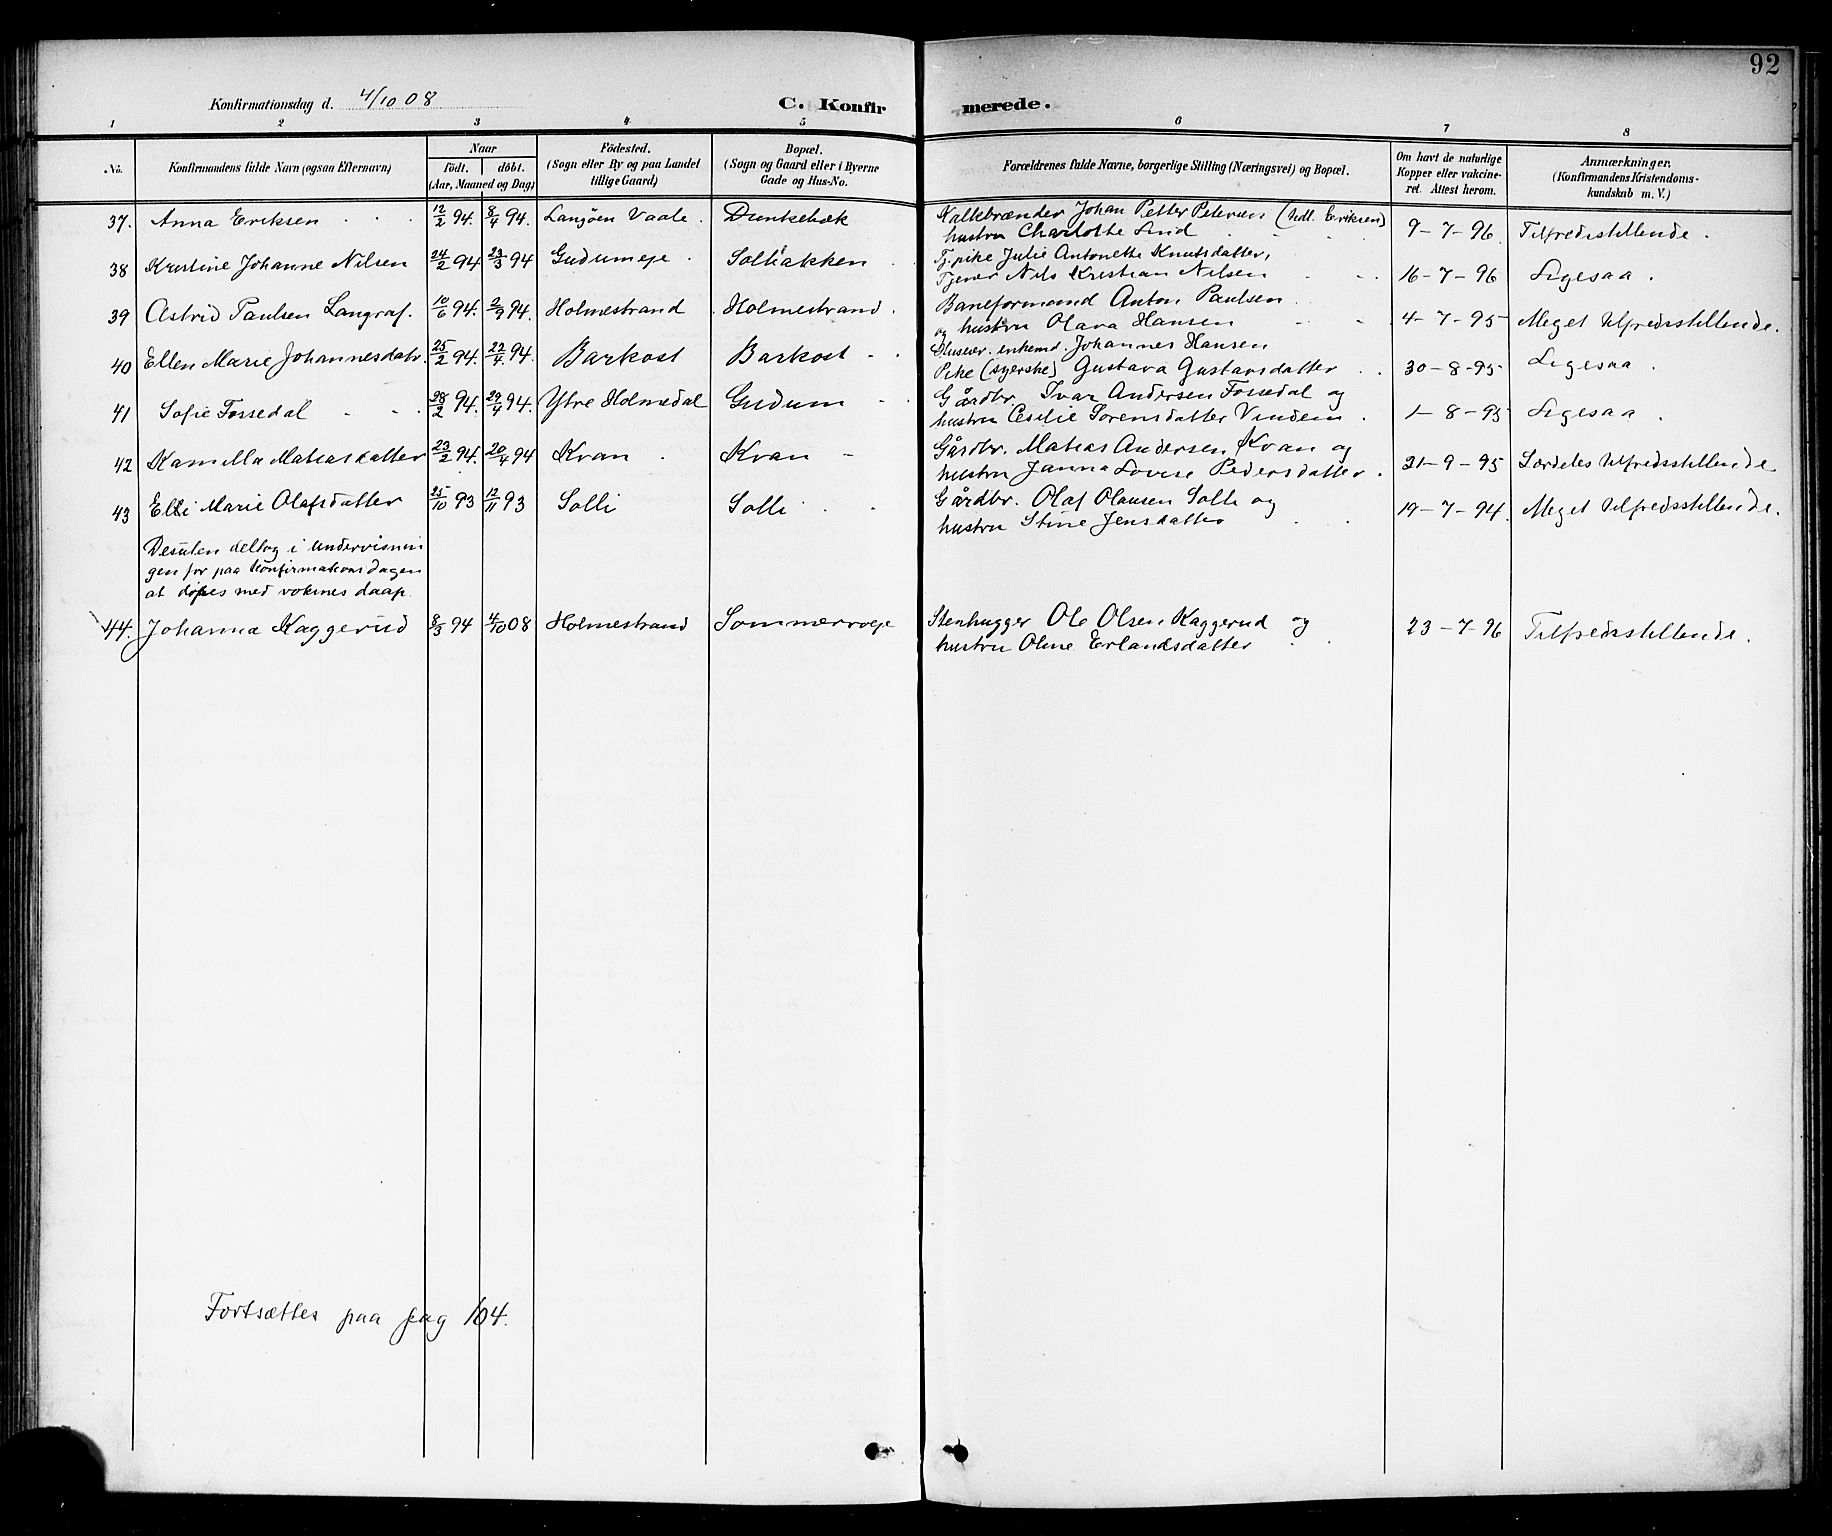 92
Konfirmationsdag d. 4/10 08
C. Konfirmerede.
1 2 3 4 5 6 7 8
No.
Konfirmandens fulde Navn (ogsaa Efternavn)
Naar
Födt. döbt.
(Aar, Maaned og Dag)
Födested.
(Sogn eller By og paa Landet
tillige Gaard)
Bopæl.
(Sogn og Gaard eller i Byerne
Gade og Hus-No.
Forældrenes fulde Navne, borgerlige Stilling (Næringsvei) og Bopæl.
Om havt de naturlige
Kopper eller vakcine-
ret. Attest herom.
Anmærkninger.
(Konfirmandens Kristendoms-
kundskab m. V.)
37. Anna Eriksen 12/2 94. 8/4 94. Langöen Vaale. Dunkebæk
Kalkbrænder Johan Petter Petersen (Kdl. Eriksen)
hustru Charlotte Lind
9-7-96. Tilfredsstillende.
38 Kristine Johanne Nilsen 24/2 94 23/3 94 Gudumeje. Solbakken
Tj.pike Julie Antonette Knutsdatter,
Tjener Nils Kristian Nilsen
16-7-96 Ligesaa.
39 Astrid Paulsen Langraf. 10/6 94. 2/9 94. Holmestrand Holmestrand.
Baneformand Anton Paulsen
og hustru Olava Hansen
4-7-95 Meget tilfredsstillende.
40 Ellen Marie Johannesdatr. 25/2 94. 22/4 94. Barkost Barkost
Huseier. enkemd. Johannes Hansen
Pike (syerske) Gustava Gustavsdatter
30-8-95 Ligesaa.
41 Sofie Fossedal 28/2 94. 29/4 94. Ytre Holmedal Gudum
Gårdbr. Ivar Andersen Fossedal og
hustru Cecilie Sorensdatter Vindein.
1-8-95 Ligesaa.
42 Kamilla Matiasdatter 23/2 94. 20/4 94 Kvan Kvan
Gårdbr. Matias Andersen Kvan og
hustru Janna Lovise Pedersdatter.
21-9-95 Særdeles tilfredsstillende
43 Elli Marie Olafsdatter 25/10 93 12/11 93 Solli Solli
Gårdbr. Olaf Olausen Solli og
hustru Stine Jensdatter
19-7-94. Meget tilfredsstillende.
Desuten deltog i undervisnin
gen for paa konfirmationsdagen
at döpes med voksnes daap.
44. Johanna Kaggerud 8/3 94 4/10 08 Holmestrand Sommerroeje
Stenhugger Ole Olsen Kaggerud og
hustru Oline Erlandsdatter
23-7-96 Tilfredsstillende.
Fortsættes paa pag 164.